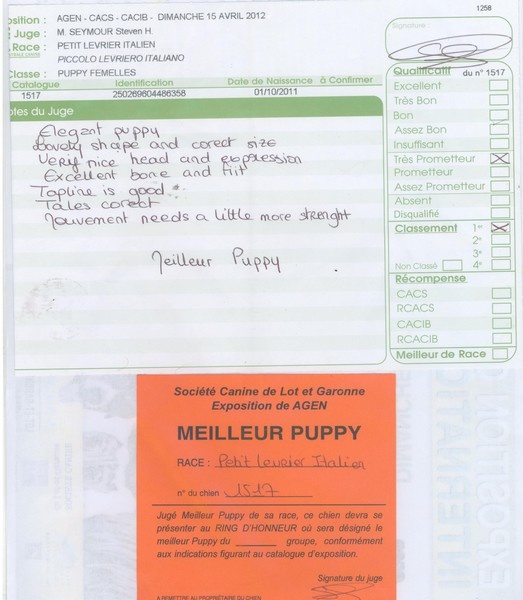 1258
osition : AGEN - CACS - CACIB - DIMANCHE 15 AVRIL 2012
Juge : M. SEYMOUR Steven H.
Race : PETIT LEVRIER ITALIEN
PICCOLO LEVRIERO ITALIANO
Classe : PUPPY FEMELLES
Catalogue Identification Date de Naissance à Confirmer
1517 250269604486358 01/10/2011
otes du Juge
Elegant puppy
Lovely shape and corect size
Very nice head and expression
Excellent bone and
Topline is good
Tales corect
Mouvement needs a little more strenght
Meilleur Puppy
Signature :
Qualificatif du n° 1517
Excellent
Très Bon
Bon
Assez Bon
Insuffisant
Très Prometteur
Prometteur
Assez Prometteur
Absent
Disqualifié
Classement 1er
2e
3e
Non Classé 4e
Récompense
CACS
RCACS
CACIB
RCACIB
Meilleur de Race
Société Canine de Lot et Garonne
Exposition de AGEN
MEILLEUR PUPPY
RACE : Petit Levrier Italien
n° du chien 1517
Jugé Meilleur Puppy de sa race, ce chien devra se
présenter au RING D'HONNEUR où sera désigné le
meilleur Puppy du ______ groupe, conformément
aux indications figurant au catalogue d'exposition.
Signature du juge
A REMETTRE AU PROPRIÉTAIRE DU CHIEN